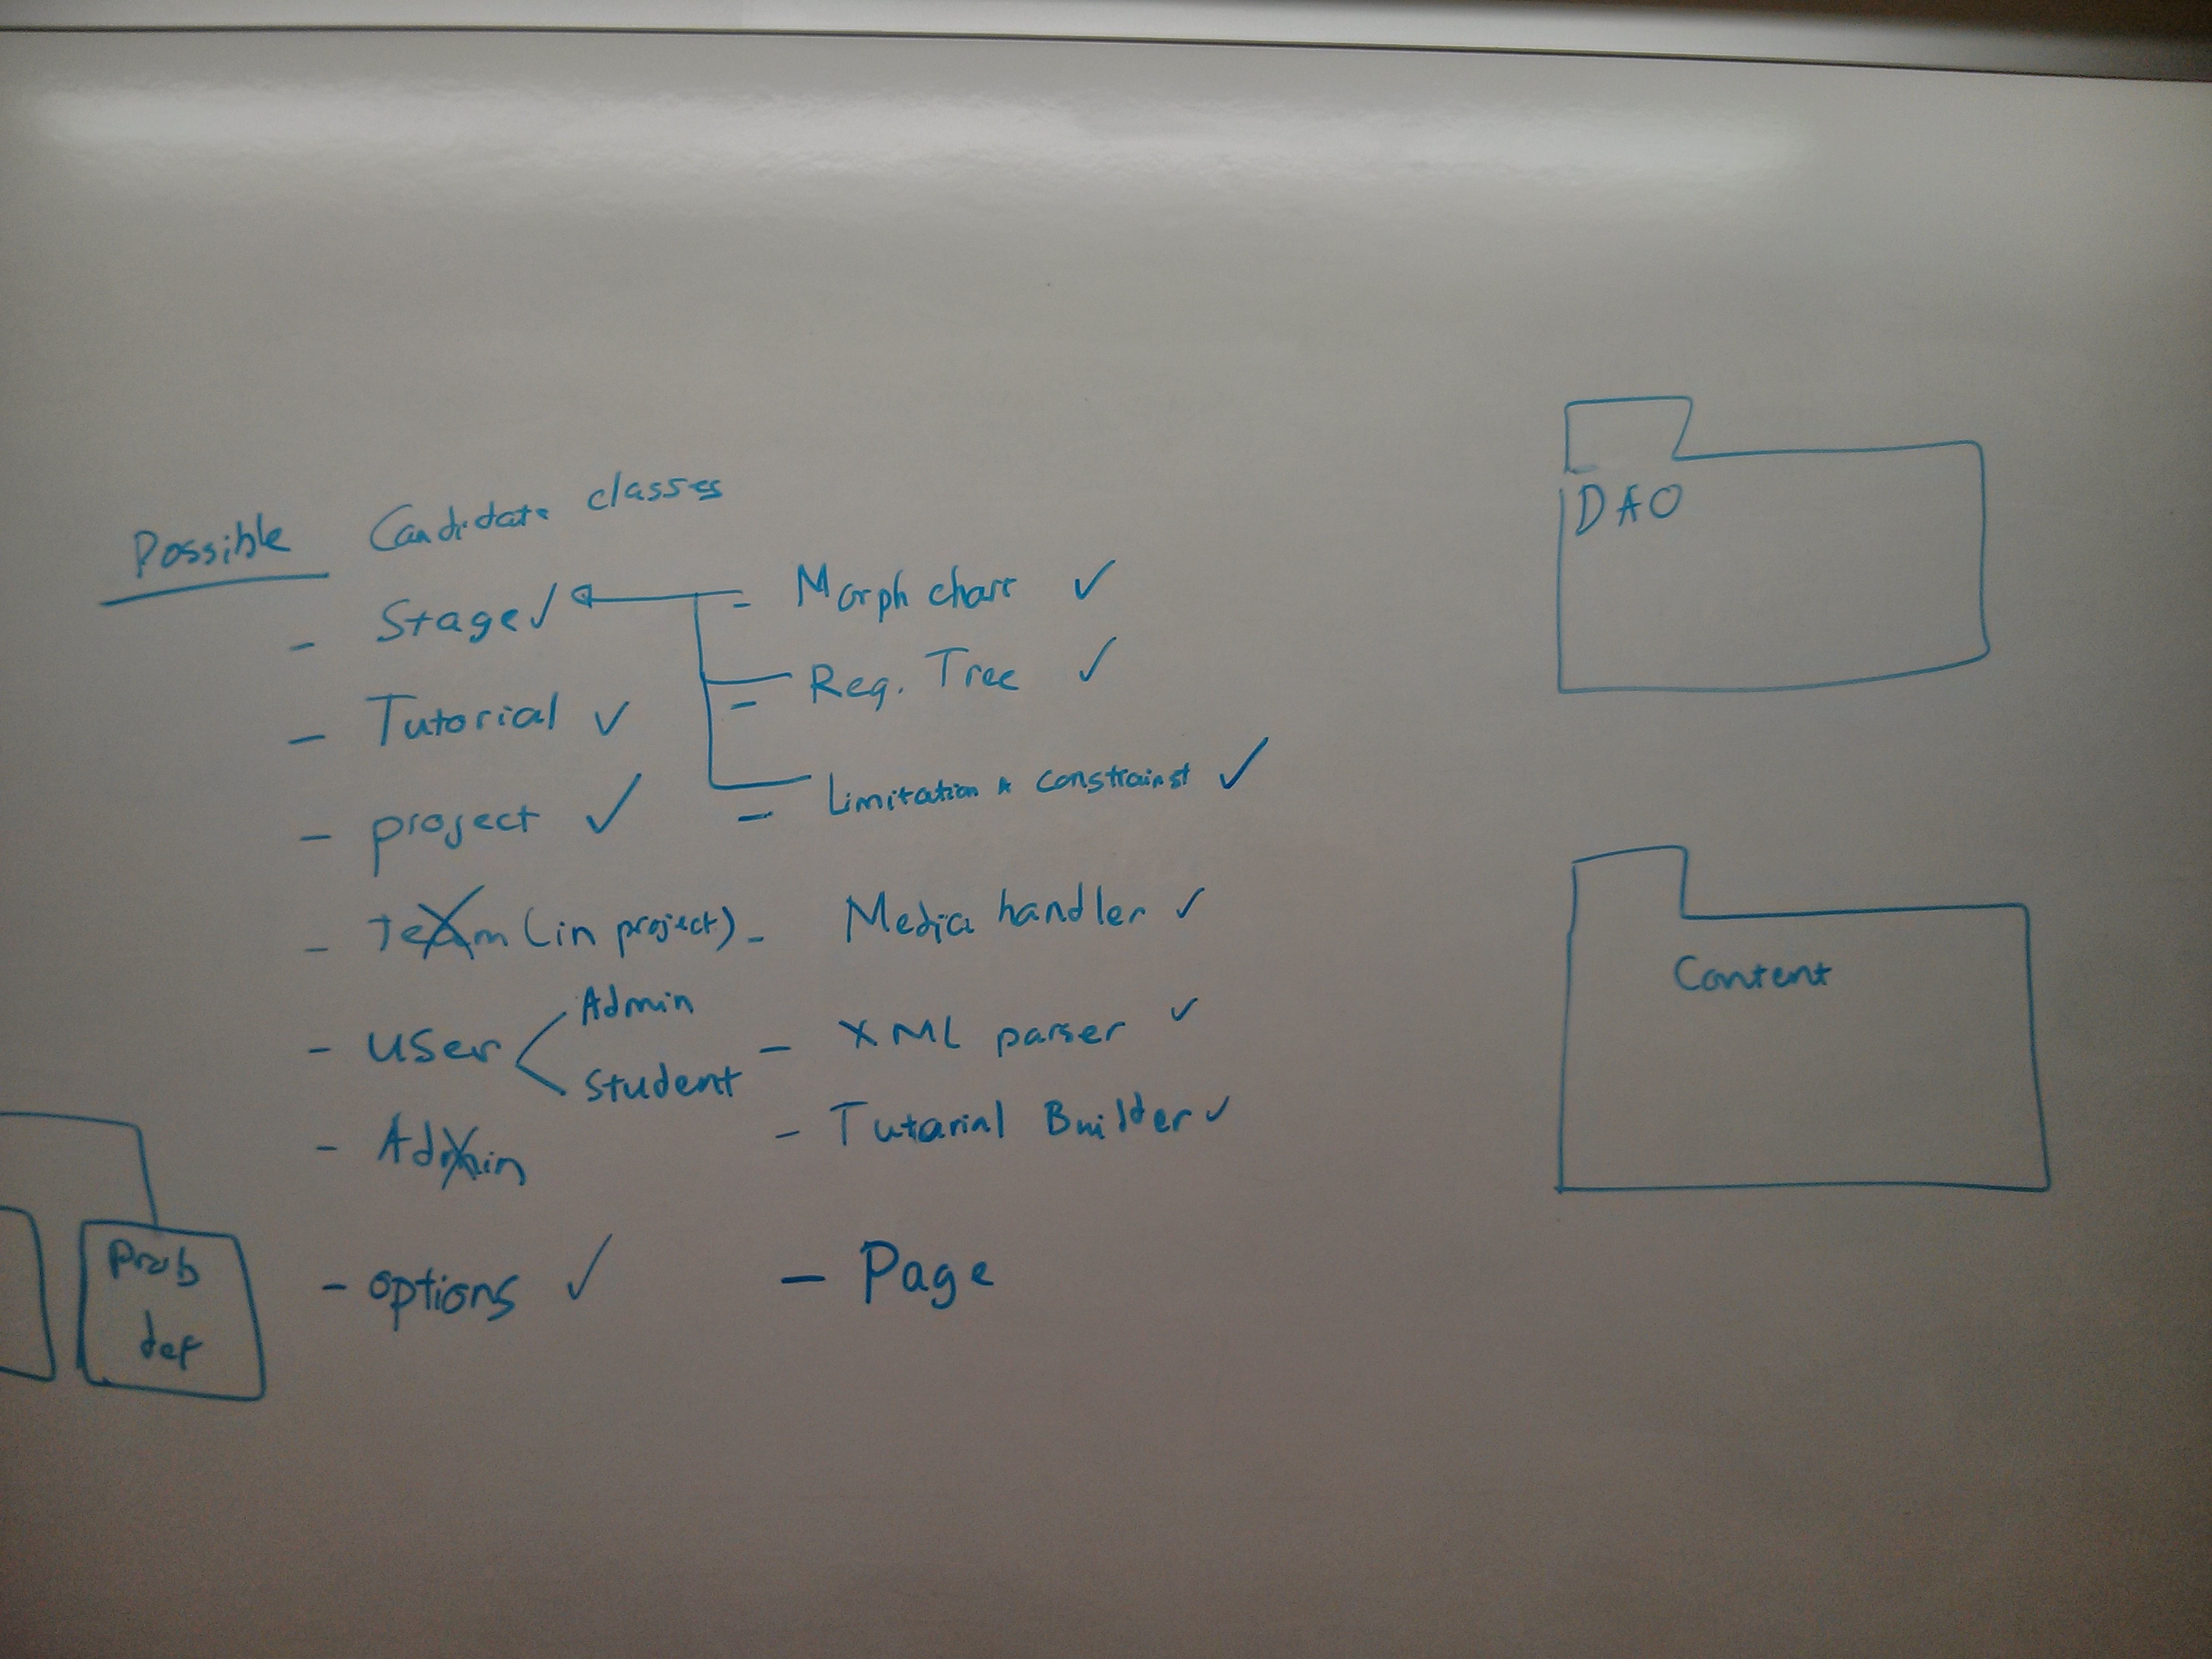 Possible Candidate classes
- Stage ✓
- Tutorial ✓
- project ✓
- Team (in project)
- user
Admin
Student
- Admin
- options ✓
- Morph chart ✓
- Req. Tree ✓
- Limitation & constrainst ✓
- Media handler ✓
- XML parser ✓
- Tutarial Builder ✓
- Page
DAO
Content
Prob
def